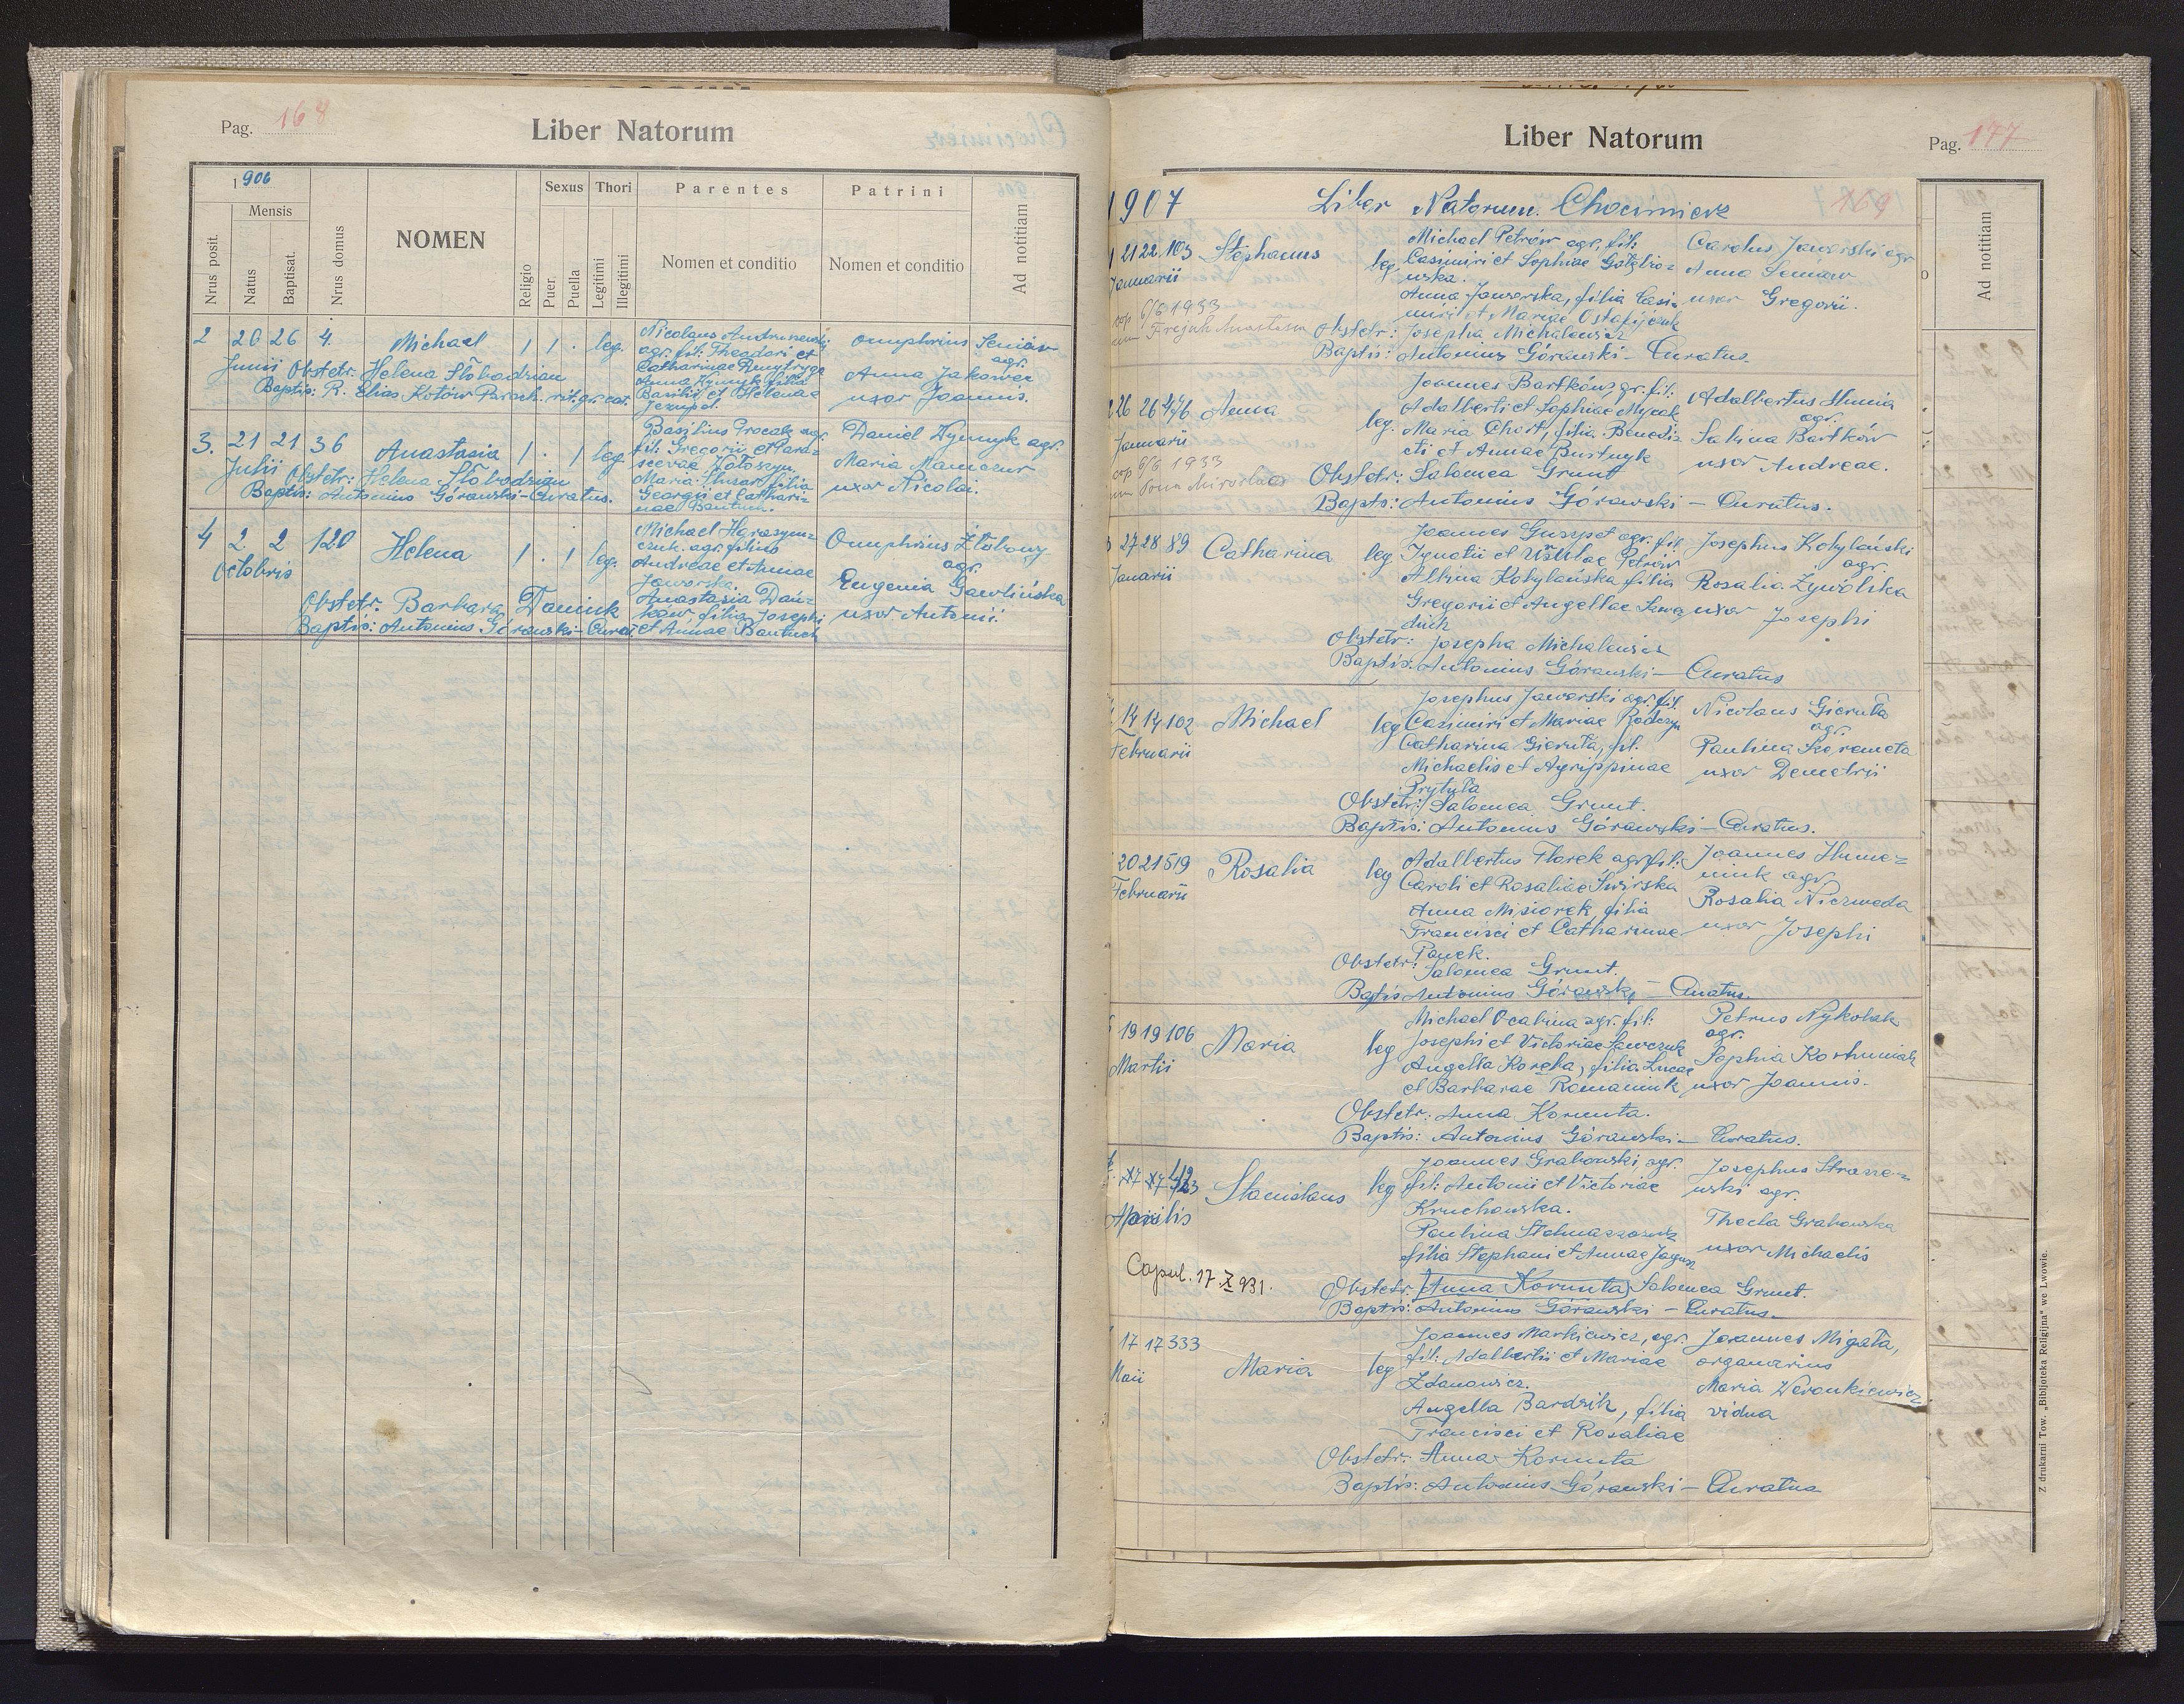 Pag. 168
Liber Natorum
1906
Mensis
Nrus posit.
Natus
Baptisat.
Nrus domus
NOMEN
Religio
Sexus
Puer
Puella
Thori
Legitimi
Illegitimi
Parentes
Nomen et conditio
Patrini
Nomen et conditio
Ad notitiam
2 26 26 4. Michael 1 1 . leg.
Junii Obstetr: Helena Słobodzian
Baptis: R. Elias Kotów Paroch. rit. gr. cat.
agr. fil: Theodori et
Anna Wynnyk filia
Basilii et Helenae
Onuphrius Seniów
agr.
Anna Jakowec
uxor Joannis.
3. 21 21 36 Anastasia 1 . 1 leg
Julii Obstetr: Helena Słobodzian
Baptis: Antonius Górawski - Curatus.
Basilius Procak agr.
fil: Gregorii et Para-
scevae Wołoszyn.
Maria Huzar filia
Georgii et Cathari-
nae
Daniel Wynnyk agr.
Maria
uxor Nicolai.
4 2 2 120 Helena 1 . 1 leg.
Octobris
Obstetr. Barbara Daniuk
Baptis: Antonius Górawski - Curat.
Michael Harasym-
czuk agr. filius
Andreae et Annae
Jaworska.
Anastasia Dań-
ków, filia Josephi
et Annae
Onuphrius Żłobowy
agr.
Eugenia Gawlińska
uxor Antonii.
Liber Natorum
Pag. 177
1907 Liber Natorum. Chocimierz 169
1 21 22 103 Stephanus leg.
Januarii
6/6 1933
Michael Petrów agr. fil:
Casimiri et Sophiae
Anna Jaworska, filia Casi-
miri et Mariae Ostafijczuk
Obstetr: Josepha Michalewicz
Baptis: Antonius Górawski - Curatus.
Carolus Jaworski agr
Anna Seniów
uxor Gregorii.
26 26 476 Anna leg.
Januarii
6/6 1933
Joannes Bartków agr. fil:
Adalberti et Sophiae
Maria Chort, filia Benedi-
cti et Annae
Obstetr: Salomea Grunt
Baptis: Antonius Gorawski - Curatus.
Adalbertus
agr.
Sabina Bartków
uxor Andreae.
3 27 28 89 Catharina leg
Januarii
Joannes agr. fil
Ignatii et Ursulae Petrów
Albina Kobylańska filia
Gregorii et Angellae
Obstetr: Josepha Michalewicz
Baptis: Antonius Górawski - Curatus
Josephus Kobylański
agr.
Rosalia Żywólska
uxor Josephi
14 14 102 Michael leg
Februarii
Josephus Jaworski agr. fil.
Casimiri et Mariae
Catharina Gieruta, fil.
Michaelis et Agrippinae
Prytuła
Obstetr: Salomea Grunt.
Baptis: Antonius Górawski - Curatus.
Nicolaus Gieruta
agr.
Paulina Szeremeta
uxor Demetrii
20 21 519 Rosalia leg
Februarii
Adalbertus Florek agr. fil:
Caroli et Rosaliae Świrska
Anna Misiorek, filia
Francisci et Catharinae
Panek.
Obstetr: Salomea Grunt.
Baptis Antonius Górawski - Curatus.
Joannes Hume-
niuk agr
Rosalia
uxor Josephi
19 19 106 Maria leg
Martii
Michael Ocabina agr. fil:
Josephi et Victoriae Sawczuk
Angella, filia Lucae
et Barbarae Romaniuk
Obstetr: Anna Kornuta.
Baptis: Antonius Górawski - Curatus.
Petrus Nykolak
agr.
Sophia
uxor Joannis.
Stanislaus leg
Aprilis
Copul. 17.X 931.
Joannes Grabowski, agr.
fil: Antonii et Victoriae
Kruchowska.
Paulina
filia Stephani et Annae
Obstetr. Anna Kornuta Salomea Grunt.
Baptis: Antonius Górawski - Curatus.
Josephus Strasze-
wski agr.
Thecla Grabowska
uxor Michaelis
17 17 333 Maria leg
Maii
Joannes Markiewicz, agr.
fil: Adalbertii et Mariae
Zdanowicz.
Angella Bardzik, filia
Francisci et Rosaliae
Obstetr: Anna Kornuta
Baptis: Antonius Górawski - Curatus
Joannes Migała,
organarius
Maria Weronkiewicz
vidua
Ad notitiam
Z drukarni Tow. „Bibljoteka Religijna" we Lwowie.